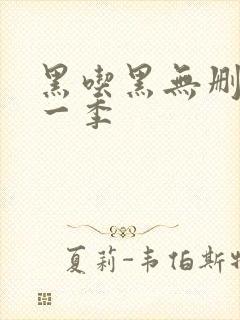 黑喫黑無刪
一季
夏莉-韦伯斯特